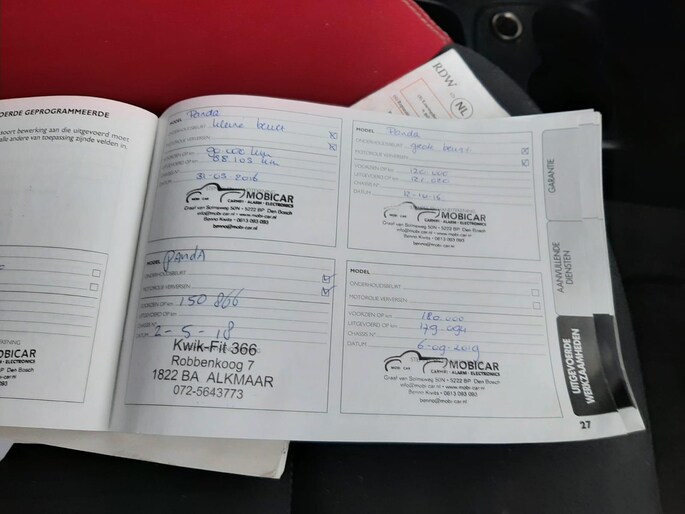 OERDE GEPROGRAMMEERDE
soort bewerking aan die uitgevoerd moet
alle andere van toepassing zijnde velden in.
MOBICAR
ALARM - ELECTRONICS
5222 BP Den Bosch
MODEL Panda
ONDERHOUDSBEURT kleine beurt
MOTOROLIE VERVERSEN
VOORZIEN OP km 90.000 km
UITGEVOERD OP km 88.103 km
CHASSIS N°
DATUM 31-03-2016
MOBICAR
MOBI CAR CARHIFI - ALARM - ELECTRONICS
Graaf van Solmsweg 50N • 5222 BP Den Bosch
info@mobi-car.nl • www.mobi-car.nl
Benno Kwids • 0613 093 093
benno@mobi-car.nl
MODEL Panda
ONDERHOUDSBEURT grote beurt
MOTOROLIE VERVERSEN
VOORZIEN OP km 120.000
UITGEVOERD OP km
CHASSIS N°
DATUM
MOBICAR
MOBI CAR CARHIFI - ALARM - ELECTRONICS
Graaf van Solmsweg 50N • 5222 BP Den Bosch
info@mobi-car.nl • www.mobi-car.nl
Benno Kwids • 0613 093 093
benno@mobi-car.nl
PANDA
ONDERHOUDSBEURT
MOTOROLIE VERVERSEN
VOORZIEN OP km 150 866
UITGEVOERD OP km
CHASSIS N°
DATUM 2-5-18
Kwik-Fit 366
Robbenkoog 7
1822 BA ALKMAAR
072-5643773
MODEL
ONDERHOUDSBEURT
MOTOROLIE VERVERSEN
VOORZIEN OP km 180.000
UITGEVOERD OP km 179.094
CHASSIS N°
DATUM 6-09-2019
MOBICAR
MOBI CAR CARHIFI - ALARM - ELECTRONICS
Graaf van Solmsweg 50N • 5222 BP Den Bosch
info@mobi-car.nl • www.mobi-car.nl
Benno Kwids • 0613 093 093
benno@mobi-car.nl
GARANTIE
AANVULLENDE
DIENSTEN
UITGEVOERDE
WERKZAAMHEDEN
27
RDW
NL